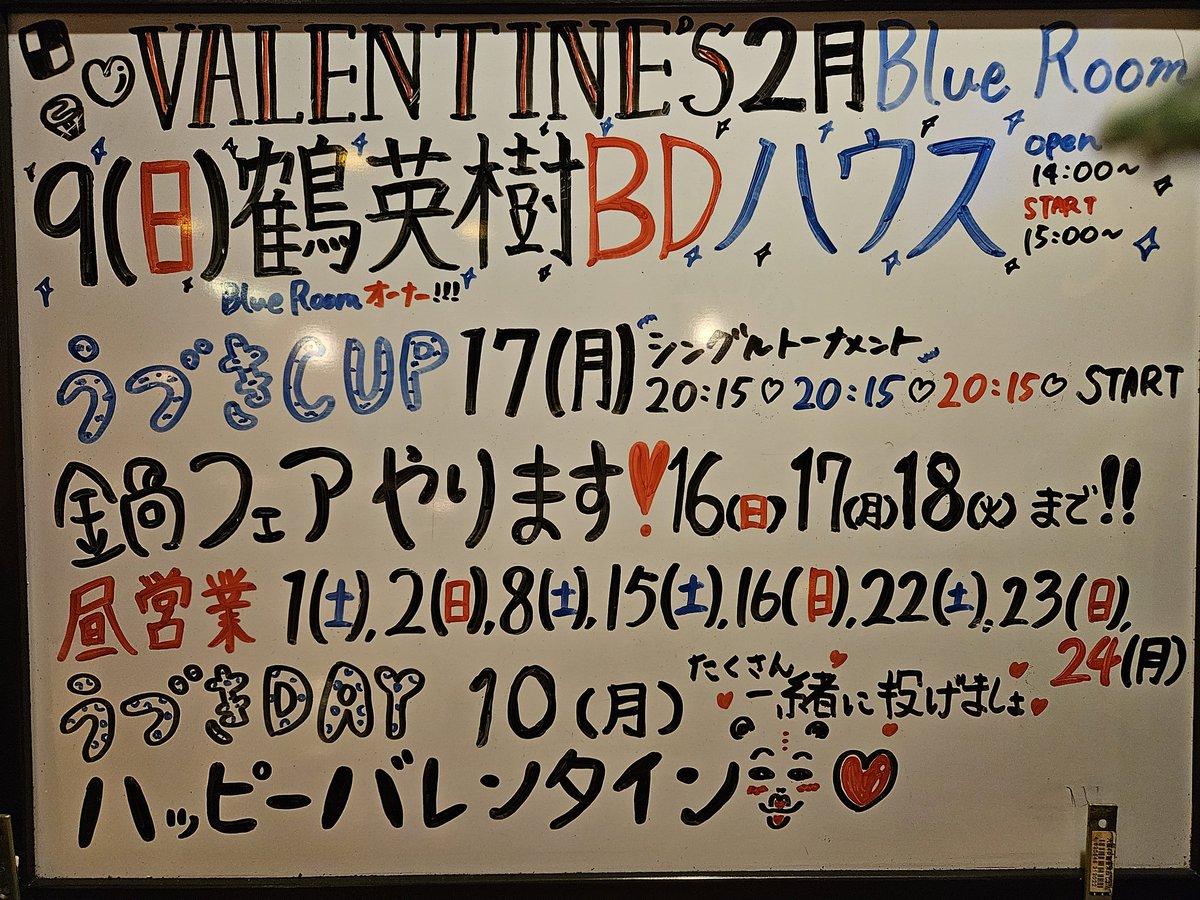 VALENTINE'S 2月 Blue Room
9(日)鶴英樹BDハウス
open
14:00~
START
15:00~
Blue Room オーナー!!!
うづきCUP 17(月) シングルトーナメント
20:15♡20:15♡20:15♡ START
鍋フェアやります!16(日)17(月)18(火)まで!!
昼営業 1(土),2(日),8(土),15(土),16(日),22(土),23(日),
24(月)
うづきDAY 10(月) たくさん
一緒に投げましょ
ハッピーバレンタイン